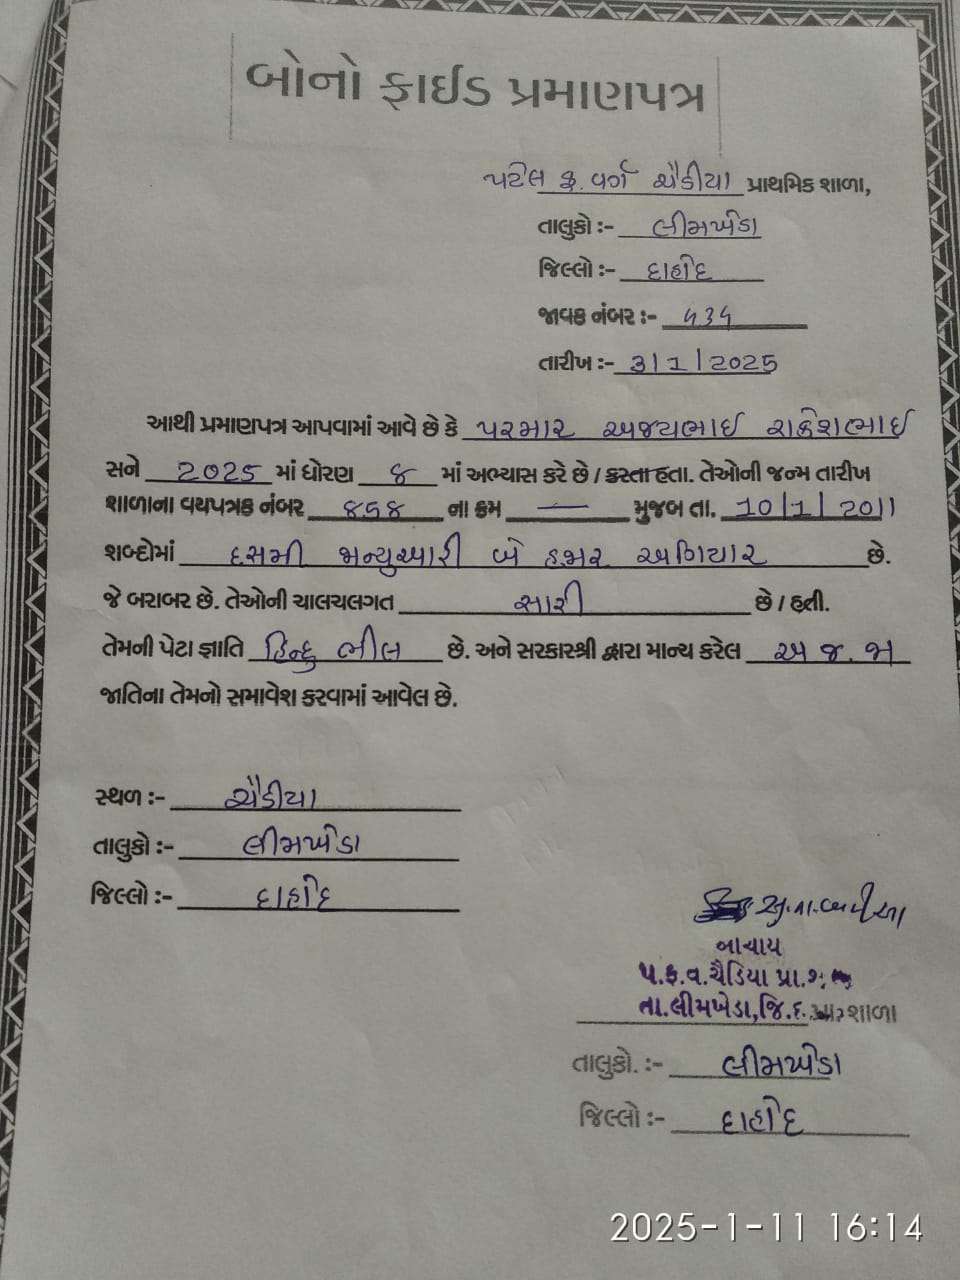 બોનો ફાઈડ પ્રમાણપત્ર
પટેલ ફ. વર્ગ ચૈડીયા પ્રાથમિક શાળા,
તાલુકો :- લીમખેડા
જિલ્લો :- દાહોદ
જાવક નંબર :- ૫૩૫
તારીખ :- 3/1/2025
આથી પ્રમાણપત્ર આપવામાં આવે છે કે પરમાર અજયભાઈ રાકેશભાઈ
સને 2025 માં ધોરણ ૪ માં અભ્યાસ કરે છે / કરતા હતા. તેઓની જન્મ તારીખ
શાળાના વયપત્રક નંબર ના ક્રમ — મુજબ તા. 10/1/2011
શબ્દોમાં દસમી જાન્યુઆરી બે હજાર અગિયાર છે.
જે બરાબર છે. તેઓની ચાલચલગત સારી છે / હતી.
તેમની પેટા જ્ઞાતિ હિન્દુ ભીલ છે. અને સરકારશ્રી દ્વારા માન્ય કરેલ અ જ. જા
જાતિના તેમનો સમાવેશ કરવામાં આવેલ છે.
સ્થળ :- ચૈડીયા
તાલુકો :- લીમખેડા
જિલ્લો :- દાહોદ
આચાર્ય
પ.ફ.વ.ચૈડિયા પ્રા.
તા.લીમખેડા,જિ.દ શાળા
તાલુકો. :- લીમખેડા
જિલ્લો :- દાહોદ
2025-1-11 16:14